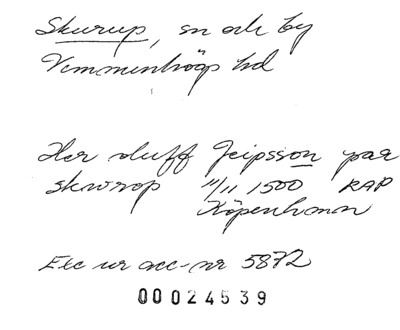 Skurup, sn och by
Vemmenhögs hd
Her oluff Jeipsson par
skwrop 11/11 1500 RAP
Köpenhamn
Exc ur acc-nr 5872
00024539